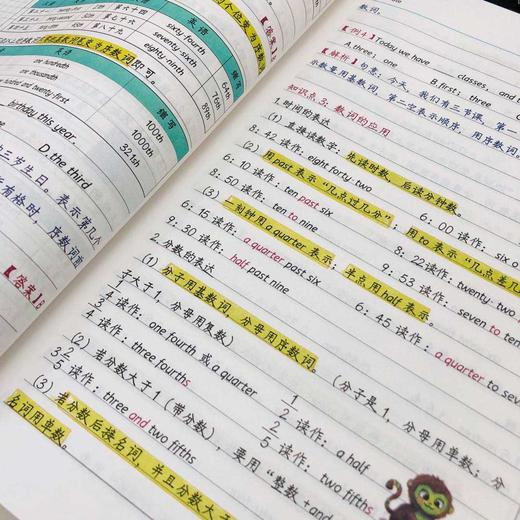 英语
缩写
第六十四
sixty fourth
64th
第七十六
seventy sixth
76th
第八十九
eighty-ninth
89th
缩写
one hundredth
100th
one thousandth
1000th
hundred and twenty-first
321st
birthday this year.
D. the third
【答案】B
数词。
【例4】Today we have ___ classes, and
A. three; one
B. first; three
【解析】句意：今天，我们有三节课，第一
示数量用基数词，第二空表示顺序，用序数词
知识点3：数词的应用
1.时间的表达
(1) 直接读数字：先读时数，后读分钟数。
8：42 读作：eight forty-two
6：00
(2) 用past表示“几点过几分”；用to表示“几点差几
6：10 读作：ten past six
8：50 读作：ten to nine
8：22读作：twenty-two
(3) 一刻钟用a quarter表示；半点用half表示。
6：15 读作：a quarter past six
9：53 读作：seven to ten
9：30 读作：half past nine
6：45 读作：a quarter to se
2.分数的表达
(1) 分子用基数词，分母用序数词。（分子是1，分母用单数；分
子大于1，分母用复数）
1/4 读作：one fourth 或 a quarter
1/2 读作：a half
3/4 读作：three fourths
2/5 读作：two fifths
(2) 若分数大于1（带分数），要用“整数+and
3 2/5 读作：three and two fifths
(3) 若分数后接名词，并且分数大于
名词用单数。